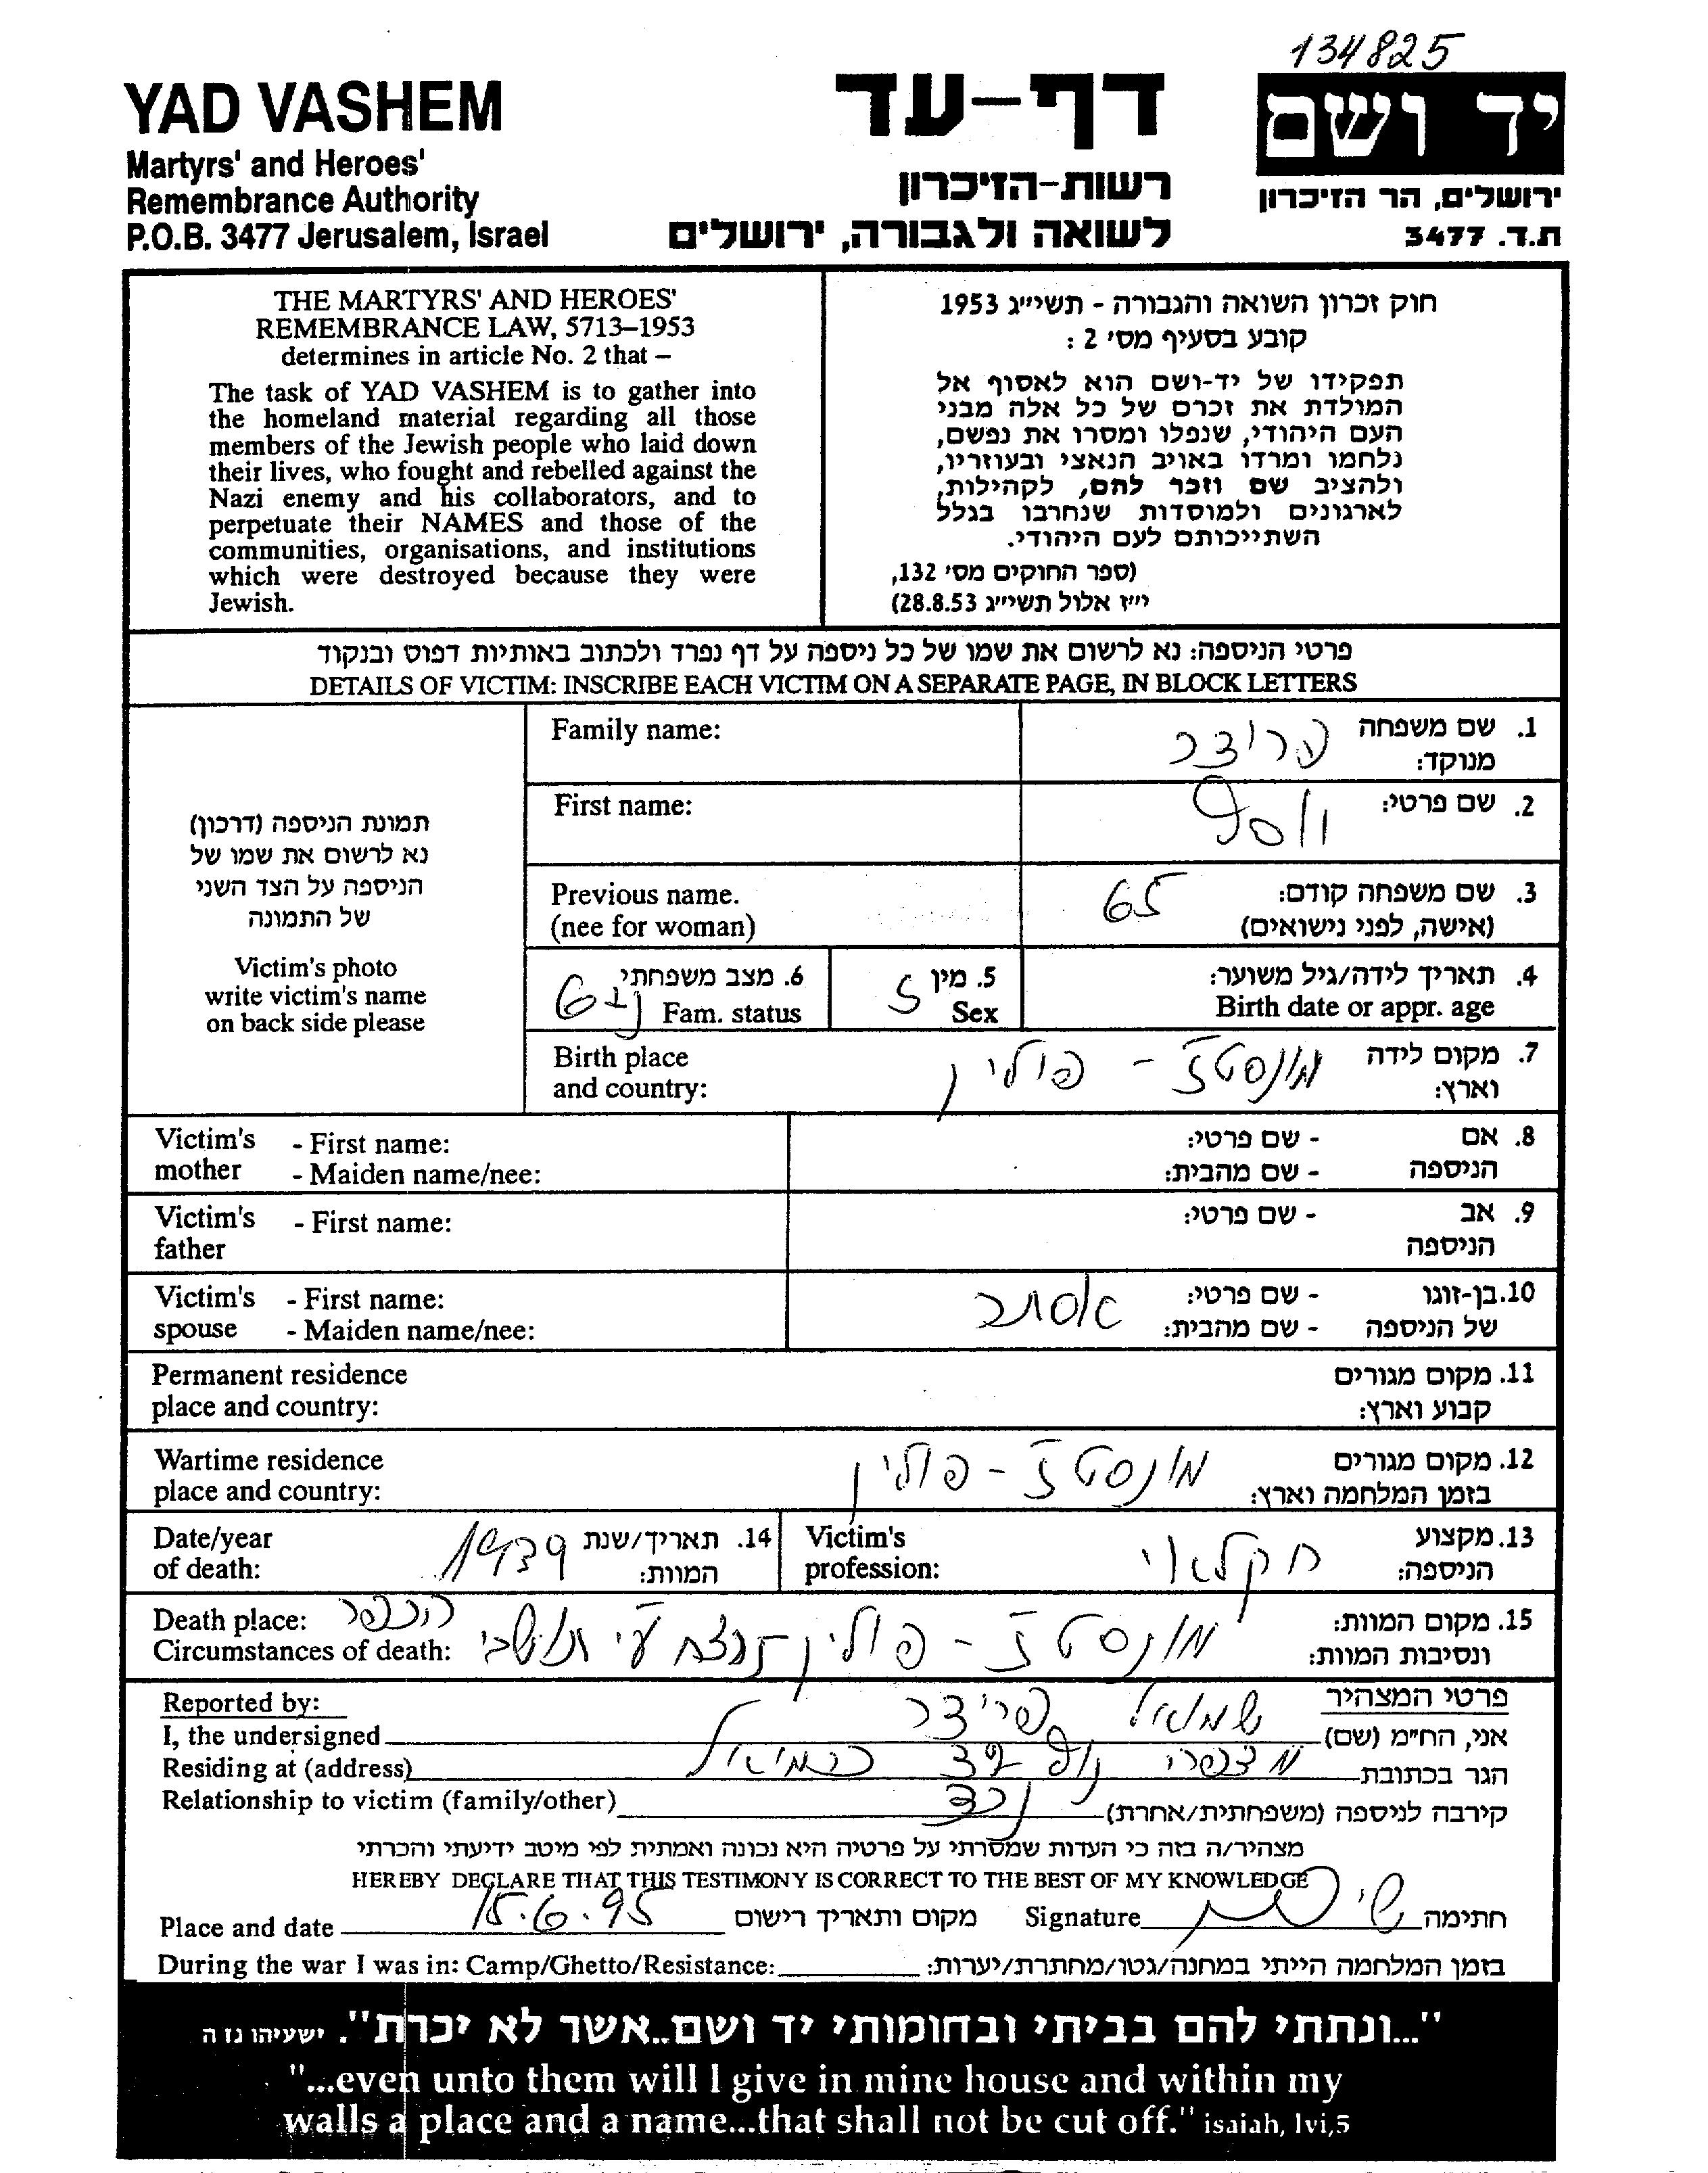 134825
YAD VASHEM
Martyrs' and Heroes'
Remembrance Authority
P.O.B. 3477 Jerusalem, Israel
דף-עד
רשות-הזיכרון
לשואה ולגבורה, ירושלים
יד ושם
ירושלים, הר הזיכרון
ת.ד. 3477
THE MARTYRS' AND HEROES'
REMEMBRANCE LAW, 5713–1953
determines in article No. 2 that –
The task of YAD VASHEM is to gather into
the homeland material regarding all those
members of the Jewish people who laid down
their lives, who fought and rebelled against the
Nazi enemy and his collaborators, and to
perpetuate their NAMES and those of the
communities, organisations, and institutions
which were destroyed because they were
Jewish.
חוק זכרון השואה והגבורה - תשי״ג 1953
קובע בסעיף מס׳ 2 :
תפקידו של יד-ושם הוא לאסוף אל
המולדת את זכרם של כל אלה מבני
העם היהודי, שנפלו ומסרו את נפשם,
נלחמו ומרדו באויב הנאצי ובעוזריו,
ולהציב שם וזכר להם, לקהילות,
לארגונים ולמוסדות שנחרבו בגלל
השתייכותם לעם היהודי.
(ספר החוקים מס׳ 132,
י״ז אלול תשי״ג 28.8.53)
פרטי הניספה: נא לרשום את שמו של כל ניספה על דף נפרד ולכתוב באותיות דפוס ובנקוד
DETAILS OF VICTIM: INSCRIBE EACH VICTIM ON A SEPARATE PAGE, IN BLOCK LETTERS
תמונת הניספה (דרכון)
נא לרשום את שמו של
הניספה על הצד השני
של התמונה
Victim's photo
write victim's name
on back side please
Family name:
1. שם משפחה
מנוקד:
פרידבר
First name:
2. שם פרטי:
יוסף
Previous name.
(nee for woman)
3. שם משפחה קודם:
(אישה, לפני נישואים)
65
4. תאריך לידה/גיל משוער:
Birth date or appr. age
5. מין ז
Sex
6. מצב משפחתי
Fam. status
Birth place
and country:
7. מקום לידה
וארץ:
פולין
Victim's mother - First name:
- Maiden name/nee:
8. אם הניספה - שם פרטי:
- שם מהבית:
Victim's father - First name:
9. אב הניספה - שם פרטי:
Victim's spouse - First name:
- Maiden name/nee:
10. בן-זוגו של הניספה - שם פרטי: אסתר
- שם מהבית:
Permanent residence
place and country:
11. מקום מגורים
קבוע וארץ:
Wartime residence
place and country:
12. מקום מגורים
בזמן המלחמה וארץ:
פולין
Date/year
of death:
14. תאריך/שנת
המוות:
1939
Victim's
profession:
13. מקצוע
הניספה:
חקלאי
Death place:
Circumstances of death:
15. מקום המוות:
ונסיבות המוות:
פולין נרצח ע״י תושבי הכפר
Reported by:
פרטי המצהיר
I, the undersigned
אני, הח״מ (שם) שמואל פרידבר
Residing at (address)
הגר בכתובת כרמיאל
Relationship to victim (family/other)
קירבה לניספה (משפחתית/אחרת) נכד
מצהיר/ה בזה כי העדות שמסרתי על פרטיה היא נכונה ואמתית לפי מיטב ידיעתי והכרתי
HEREBY DECLARE THAT THIS TESTIMONY IS CORRECT TO THE BEST OF MY KNOWLEDGE
Place and date 15.6.95 מקום ותאריך רישום Signature חתימה
During the war I was in: Camp/Ghetto/Resistance: בזמן המלחמה הייתי במחנה/גטו/מחתרת/יערות:
"...ונתתי להם בביתי ובחומותי יד ושם..אשר לא יכרת". ישעיהו נו ה
"...even unto them will I give in mine house and within my
walls a place and a name...that shall not be cut off." isaiah, lvi,5